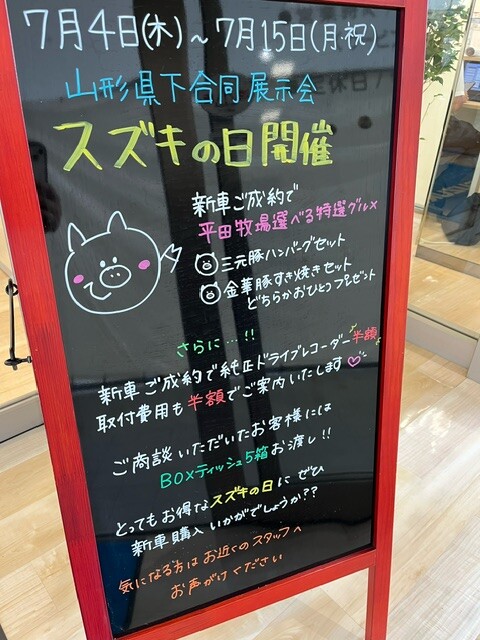 7月4日(木)~7月15日(月・祝)
山形県下合同展示会
スズキの日開催
新車ご成約で
平田牧場選べる特選グルメ
三元豚ハンバーグセット
金華豚すき焼きセット
どちらかおひとつプレゼント
さらに…!!
新車ご成約で純正ドライブレコーダー半額
取付費用も半額でご案内いたします♡
ご商談いただいたお客様には
BOXティッシュ5箱お渡し!!
とってもお得なスズキの日にぜひ
新車購入いかがでしょうか??
気になる方はお近くのスタッフへ
お声がけください